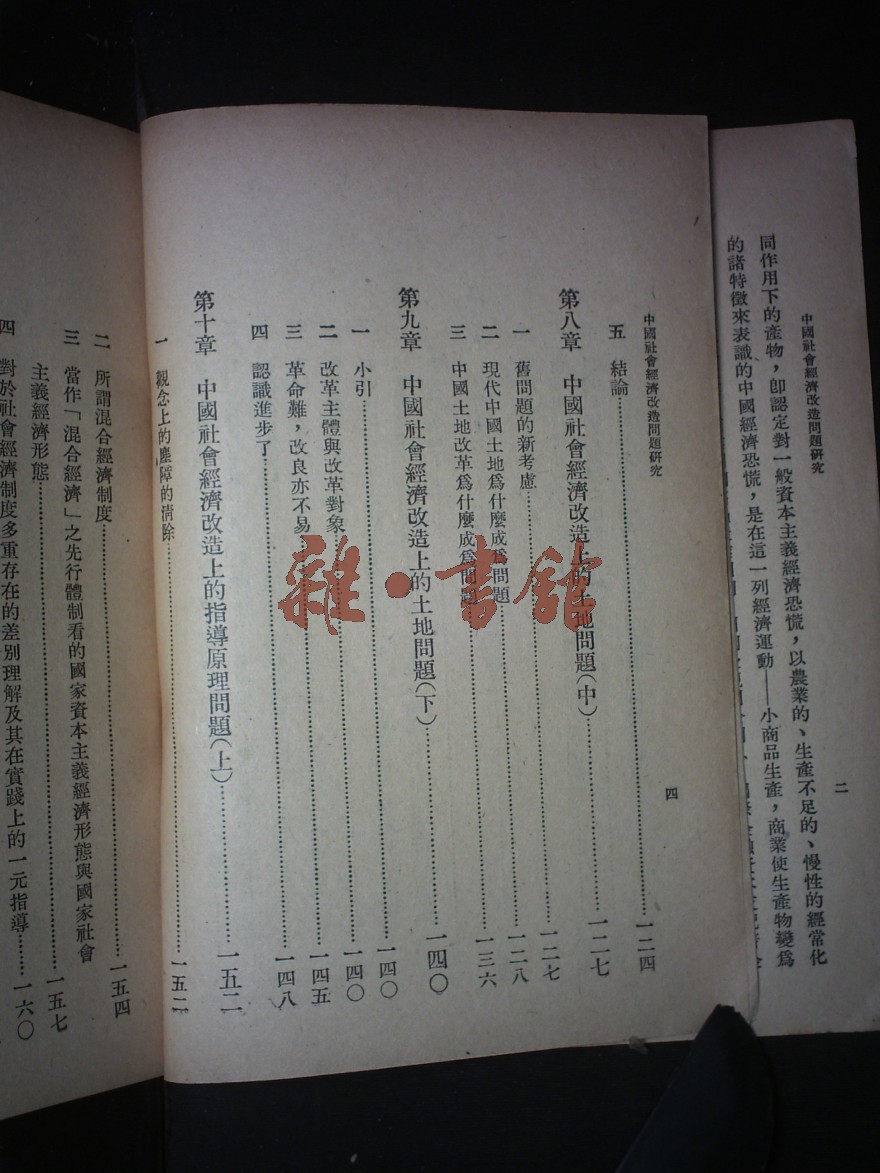 中國社會經濟改造問題研究
二
同作用下的產物，卽認定對一般資本主義經濟恐慌，以農業的、生產不足的、慢性的經常化
的諸特徵來表識的中國經濟恐慌，是在這一列經濟運動——小商品生產，商業使生產物變爲
中國社會經濟改造問題研究
四
五 結論……一二四
第八章 中國社會經濟改造上的土地問題（中）……一二七
一 舊問題的新考慮……一二七
二 現代中國土地爲什麼成爲問題……一二八
三 中國土地改革爲什麼成爲問題……一三六
第九章 中國社會經濟改造上的土地問題（下）……一四〇
一 小引……一四〇
二 改革主體與改革對象……一四五
三 革命難，改良亦不易……一四八
四 認識進步了
第十章 中國社會經濟改造上的指導原理問題（上）……一五二
一 觀念上的塵障的清除……一五二
二 所謂混合經濟制度……一五四
三 當作「混合經濟」之先行體制看的國家資本主義經濟形態與國家社會
主義經濟形態……一五七
四 對於社會經濟制度多重存在的差別理解及其在實踐上的一元指導……一六〇
雜·書館